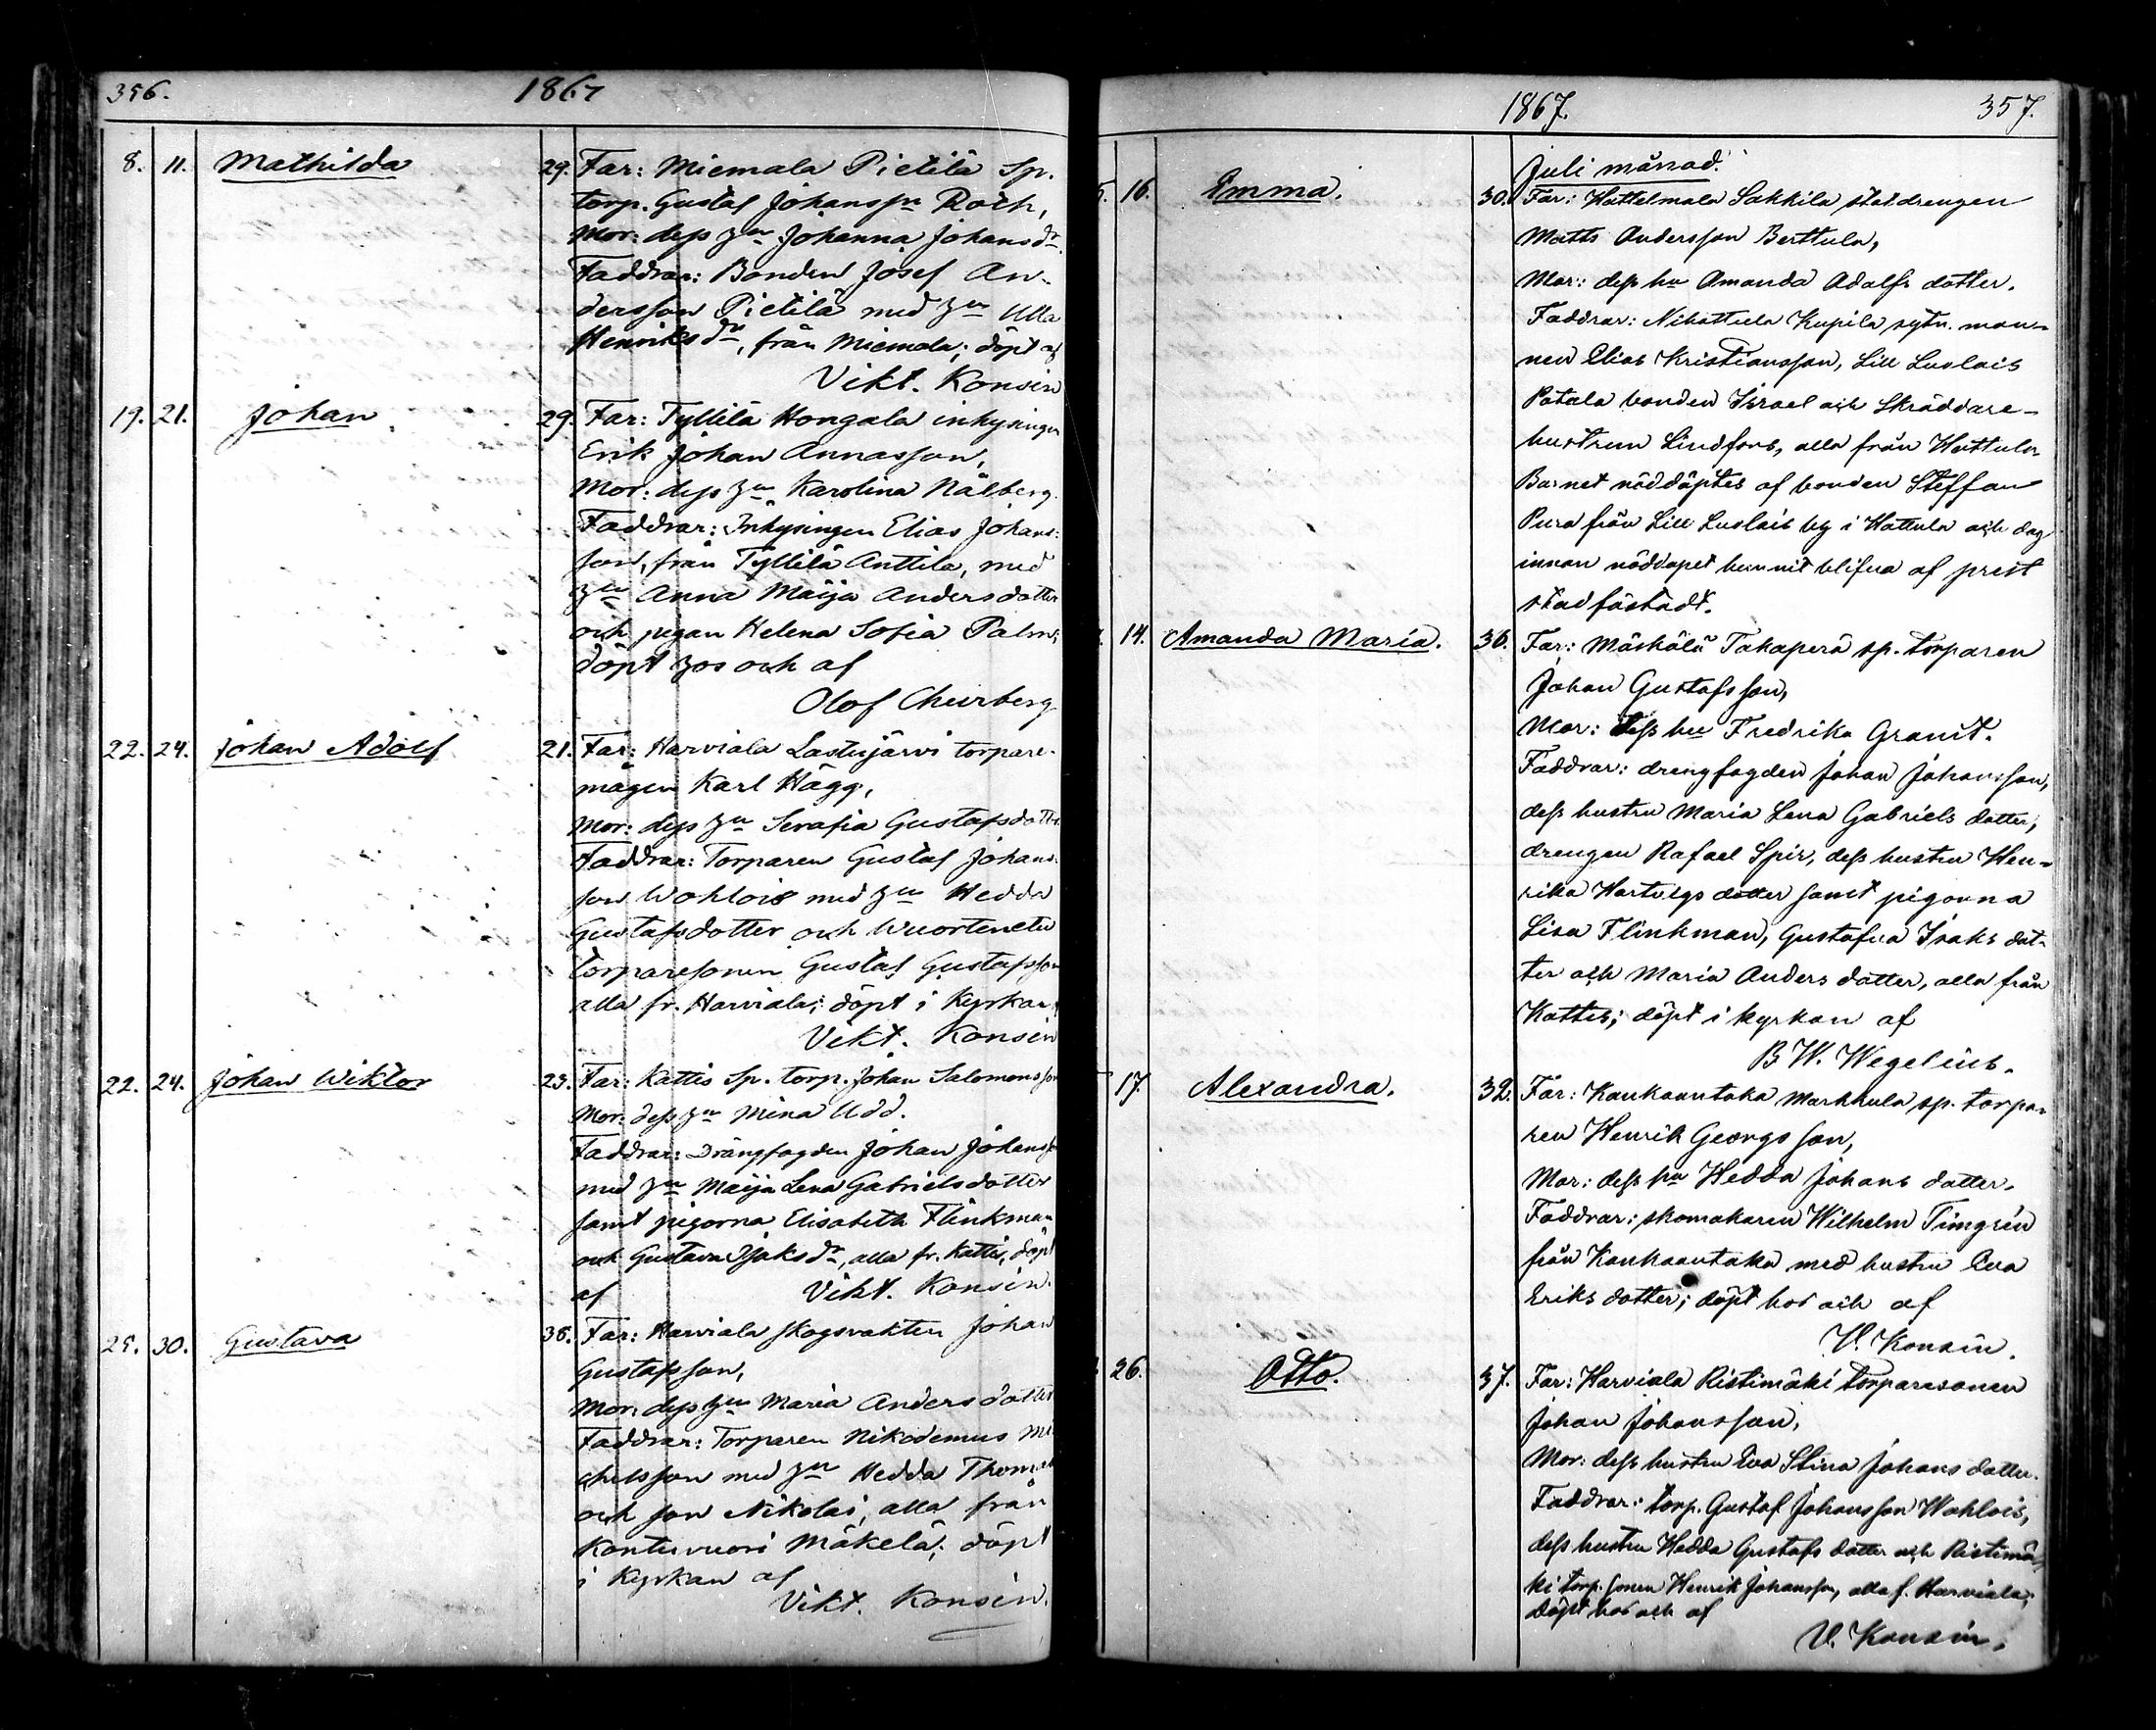 356.
1867
8. 11. Mathilda 29. Far: Miemala Pietilä Sp.
torp. Gustaf Johansson Roth,
Mor: dess hu Johanna Johansdr.
Faddrar: Bonden Josef An-
dersson Pietilä med hu Ulla
Henriksdr, från Miemala; döpt af
Vikt. Konsin
19. 21. Johan 29. Far: Tyllilä Hongala inhysingen
Erik Johan Annasson,
Mor: dess hu Karolina Nälberg.
Faddrar: Inhysingen Elias Johans-
son, från Tyllilä Anttila, med
hu Anna Maija Andersdotter
och pigan Helena Sofia Palm;
döpt hos och af
Olof Cheirberg
22. 24. Johan Adolf 21. Far: Harviala Lastujärvi torpare-
mågen Karl Hägg,
Mor: dess hu Serafia Gustafsdotter
Faddrar: Torparen Gustaf Johans-
son Wohlois med hu Hedda
Gustafsdotter och Wuortenetu
torparesonen Gustaf Gustafsson
alla fr. Harviala; döpt i Kyrkan
Vikt. Konsin
22. 24. Johan Wiktor 23. Far: Kattis Sp. torp. Johan Salomonsson
Mor: dess hu Mina Udd.
Faddrar: Drängfogden Johan Johansson
med hu Maija Lena Gabrielsdotter
samt pigorna Elisabeth Flinkman
och Gustava Isaksdr, alla fr. Kattis, döpt
af Vikt. Konsin.
25. 30. Gustava 36. Far: Harviala skogsvakten Johan
Gustafsson,
Mor: dess hu Maria Andersdotter
Faddrar: Torparen Nikodemus Mi-
chelsson med hu Hedda Thomas
och son Nikolai, alla från
Kontuvuori Mäkelä; döpt
i Kyrkan af
Vikt. Konsin.
1867.
357.
Juli månad.
16. Emma. 30. Far: Hattelmala Sakkila statdrengen
Matts Andersson Berttula,
Mor: dess hu Amanda Adolfs dotter.
Faddrar: Nihattula Kupila sytn. man-
nen Elias Kristiansson, Lill Luolais
Patala bonden Israel och Skräddare-
hustrun Lindfors, alla från Hattula
Barnet nöddöptes af bonden Steffan
Pura från Lill Luolais by i Hattula och dog
innan nöddopet hunnit blifva af prest
stadfästadt.
14. Amanda Maria. 36. Far: Mäskälä Takaperä sp. torparen
Johan Gustafsson,
Mor: dess hu Fredrika Granit.
Faddrar: drengfogden Johan Johansson,
dess hustru Maria Lena Gabriels dotter,
drengen Rafael Spir, dess hustru Hen-
rika Hartvigs dotter samt pigorna
Lisa Flinkman, Gustafva Isaks dot-
ter och Maria Anders dotter, alla från
Kattis; döpt i kyrkan af
B W. Wegelius.
17. Alexandra. 32. Far: Kankaantaka Markkula sp. torpa-
ren Henrik Georgsson,
Mor: dess hu Hedda Johans dotter.
Faddrar: skomakaren Wilhelm Timgrén
från Kankaantaka med hustru Eva
Eriks dotter; döpt hos och af
V. Konsin.
26. Otto. 37. Far: Harviala Ristimäki torparesonen
Johan Johansson,
Mor: dess hustru Eva Stina Johans dotter.
Faddrar: torp. Gustaf Johansson Wahlois,
dess hustru Hedda Gustafs dotter och Ristimä-
ki torp. sonen Henrik Johansson, alla f. Harviala;
döpt hos och af
V. Konsin.